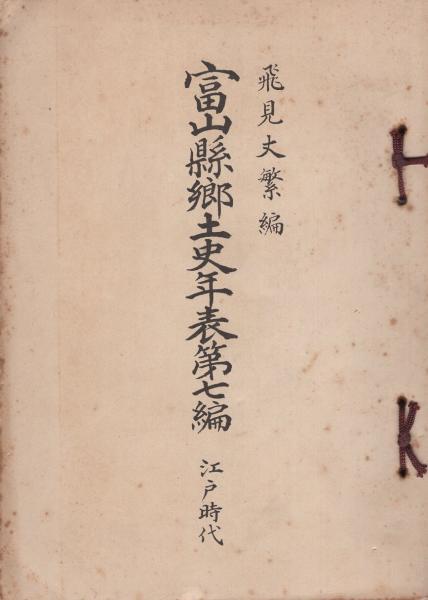 飛見丈繁編
富山縣郷土史年表第七編
江戸時代